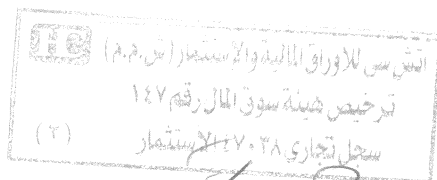 اتش سى للاوراق المالية والاستثمار (ش.م.م)
ترخيص هيئة سوق المال رقم ١٤٧
سجل تجارى ٤٧٠٣٨ الاستثمار
(٣)